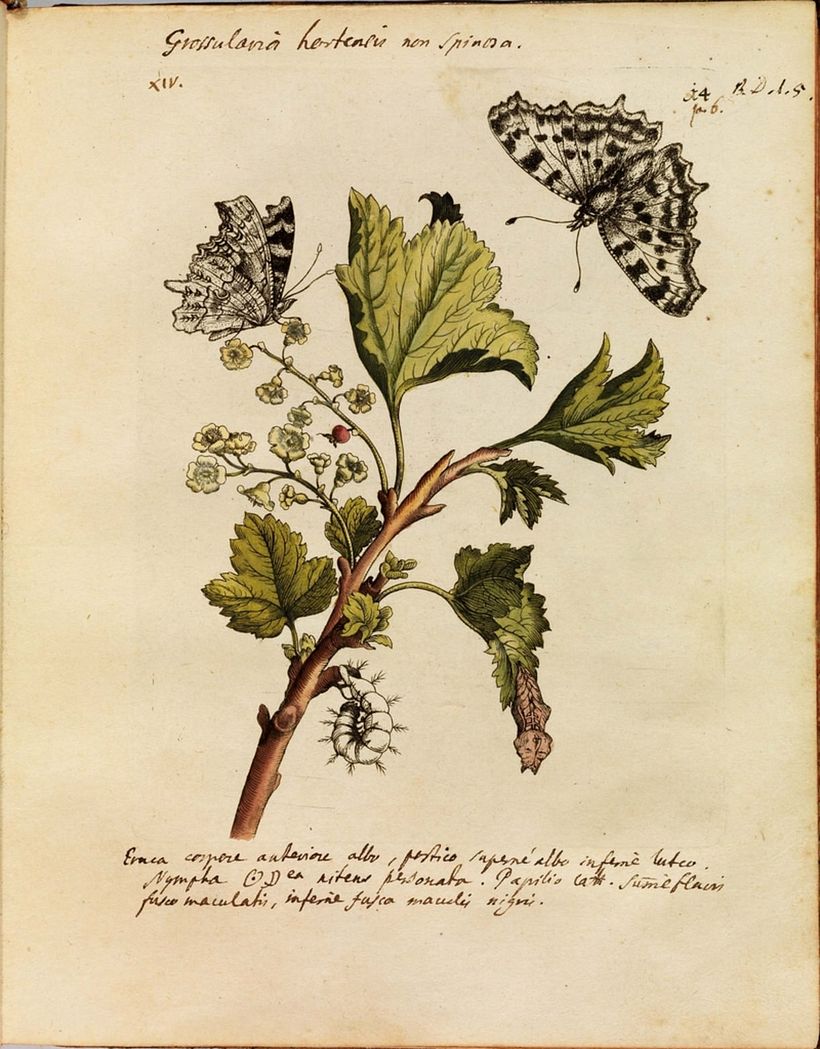 Grossularia hortensis non Spinosa.
XIV.
14 R. D. 1. 5.
p. 6.
Eruca corpore anteriore albo, postico superne albo inferne luteo.
Nympha ea nitens personata. Papilio summe flavis
fusco maculatis, inferne fusca maculis nigris.